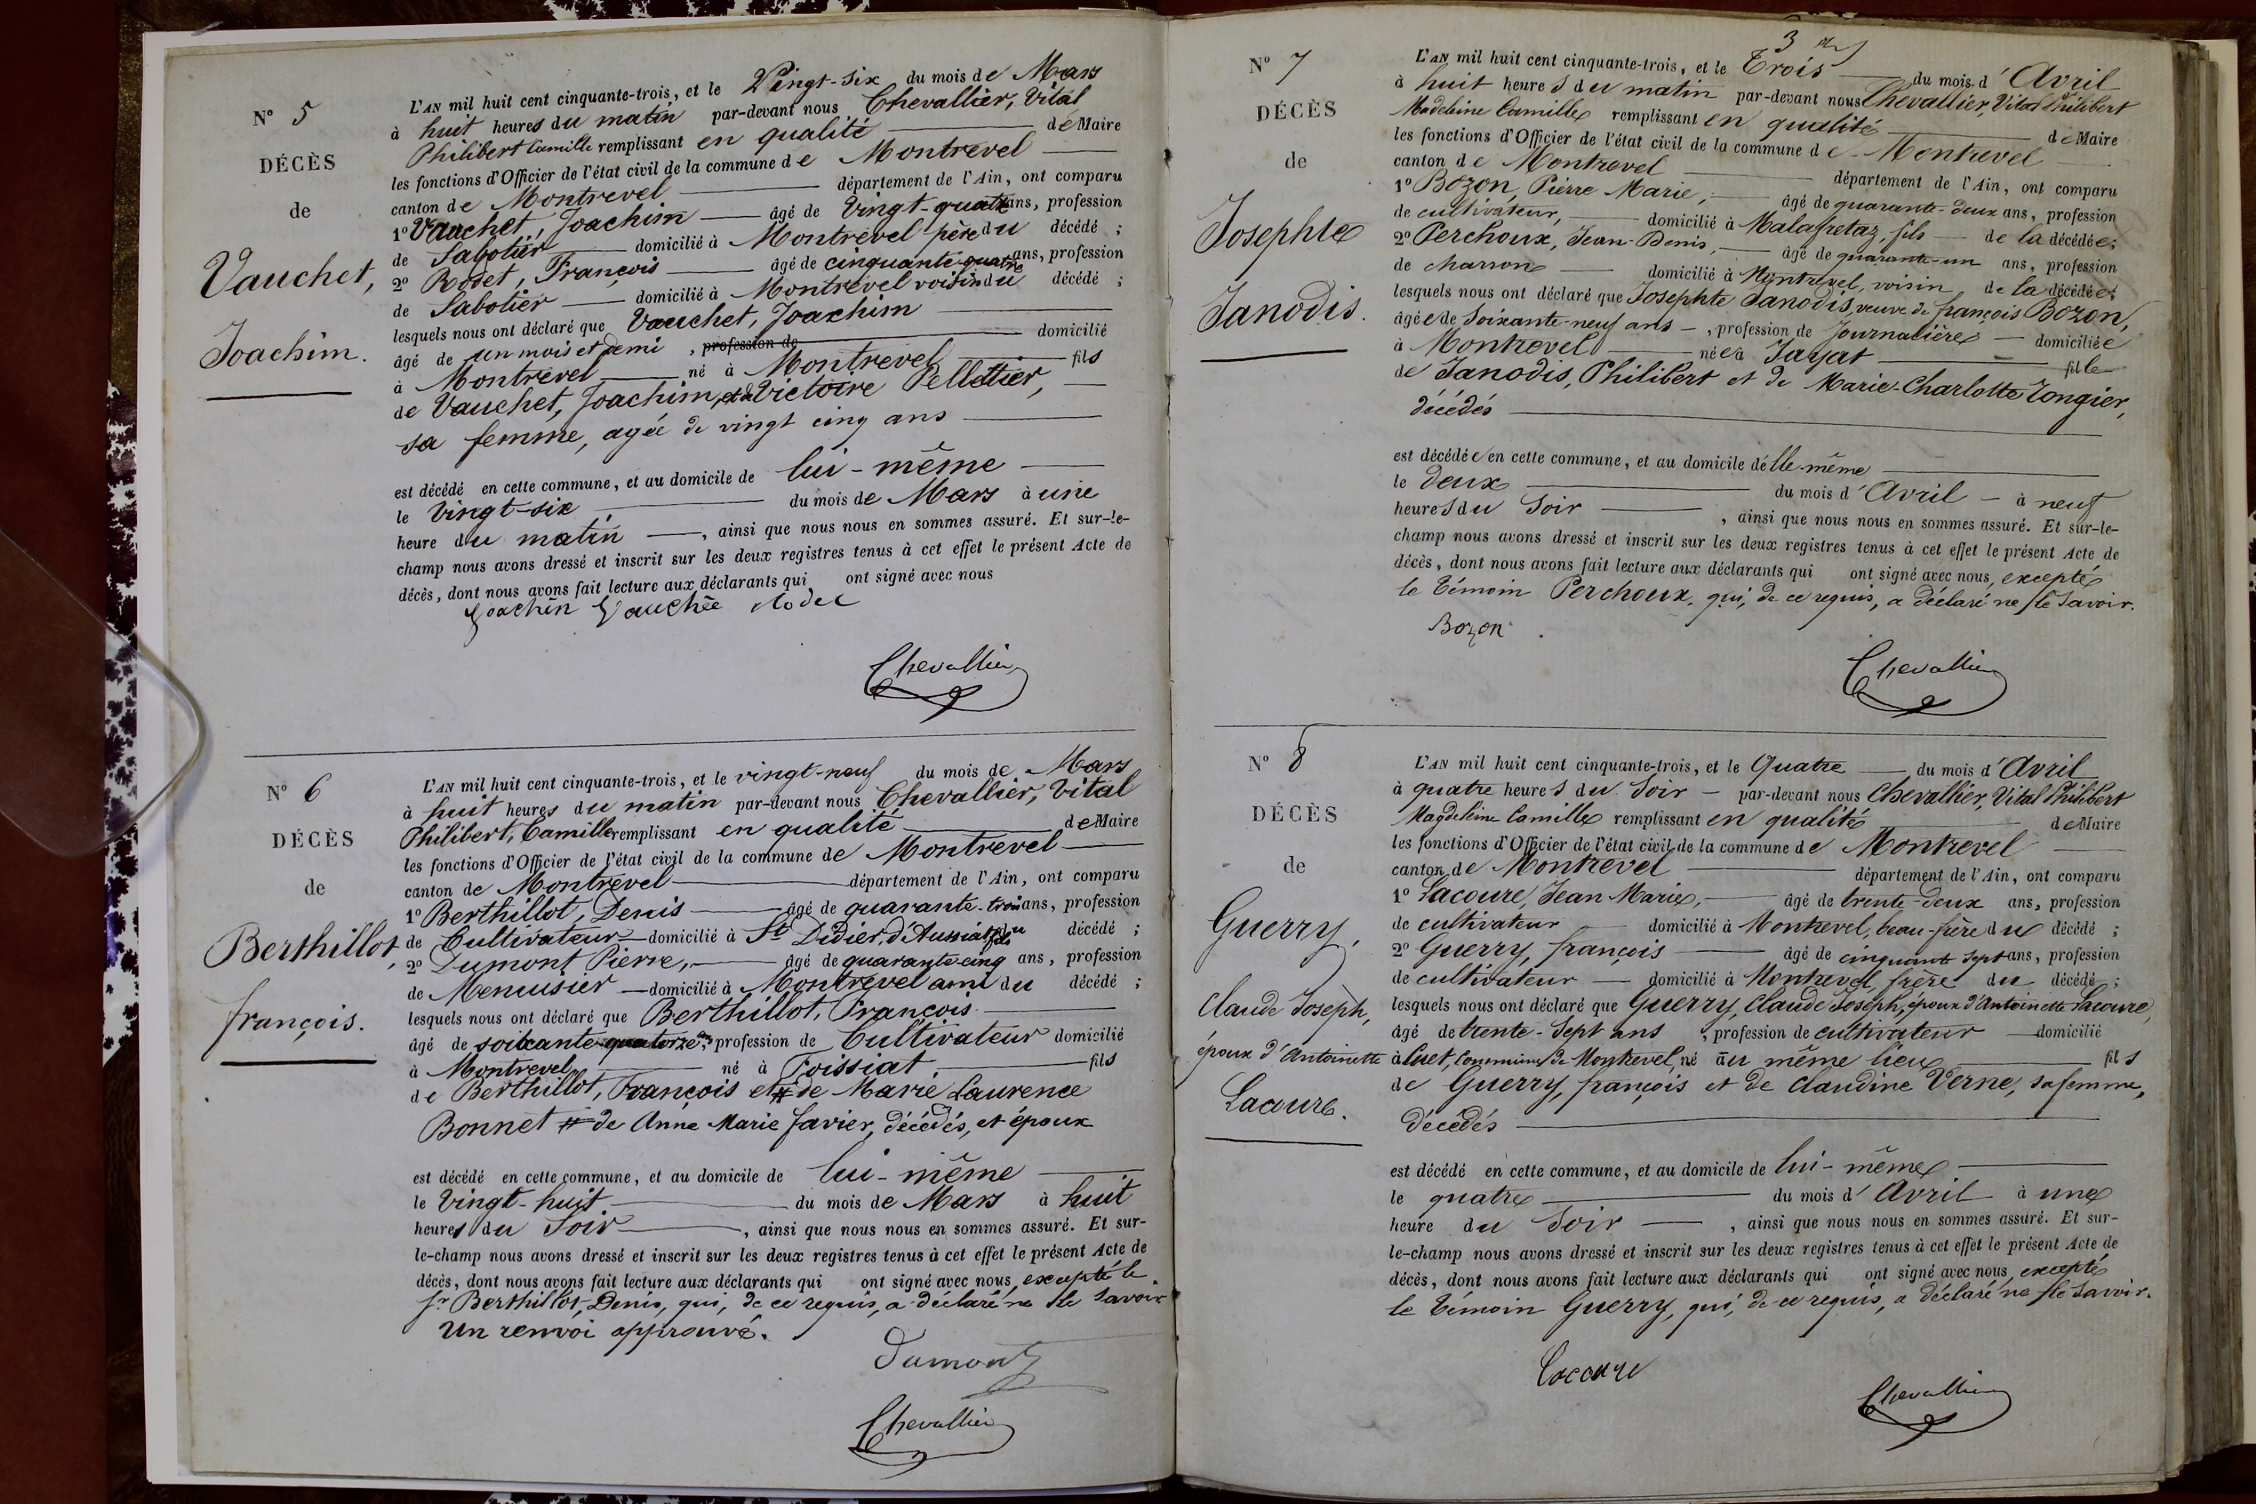 N° 5
DÉCÈS
de
Vauchet,
Joachim.
L'AN mil huit cent cinquante-trois, et le Vingt-six du mois de Mars
à huit heures du matin par-devant nous Chevallier, Vital
Philibert Camille remplissant en qualité de Maire
les fonctions d'Officier de l'état civil de la commune de Montrevel
canton de Montrevel département de l'Ain, ont comparu
1° Vauchet, Joachim âgé de Vingt-quatre ans, profession
de Sabotier domicilié à Montrevel père du décédé ;
2° Rodet, François âgé de cinquante-quatre ans, profession
de Sabotier domicilié à Montrevel voisin du décédé ;
lesquels nous ont déclaré que Vauchet, Joachim
âgé de un mois et demi , profession de domicilié
à Montrevel né à Montrevel fils
de Vauchet, Joachim, et de Victoire Pellettier,
sa femme, agée de vingt cinq ans
est décédé en cette commune, et au domicile de lui-même
le Vingt-six du mois de Mars à une
heure du matin , ainsi que nous nous en sommes assuré. Et sur-le-
champ nous avons dressé et inscrit sur les deux registres tenus à cet effet le présent Acte de
décès, dont nous avons fait lecture aux déclarants qui ont signé avec nous
Joachin Vauchée Rodet
Chevallier
N° 6
DÉCÈS
de
Berthillot,
françois.
L'AN mil huit cent cinquante-trois, et le vingt-neuf du mois de Mars
à huit heures du matin par-devant nous Chevallier, Vital
Philibert, Camille remplissant en qualité de Maire
les fonctions d'Officier de l'état civil de la commune de Montrevel
canton de Montrevel département de l'Ain, ont comparu
1° Berthillot, Denis âgé de quarante-trois ans, profession
de Cultivateur domicilié à St Didier, d'Aussiat fils du décédé ;
2° Dumont Pierre, âgé de quarante-cinq ans, profession
de Menuisier domicilié à Montrevel ami du décédé ;
lesquels nous ont déclaré que Berthillot, François
âgé de soixante-quatorze ans, profession de Cultivateur domicilié
à Montrevel né à Foissiat fils
de Berthillot, François et # de Marie Laurence
Bonnet # de Anne Marie Javier, décédés, et époux
est décédé en cette commune, et au domicile de lui-même
le Vingt-huit du mois de Mars à huit
heures du Soir , ainsi que nous nous en sommes assuré. Et sur-
le-champ nous avons dressé et inscrit sur les deux registres tenus à cet effet le présent Acte de
décès, dont nous avons fait lecture aux déclarants qui ont signé avec nous, excepté le
sr Berthillot, Denis, qui, de ce requis, a déclaré ne le savoir
Un renvoi approuvé.
Dumont
Chevallier
3
N° 7
DÉCÈS
de
Josephte
Janodis.
L'AN mil huit cent cinquante-trois, et le Trois du mois d'Avril
à huit heures du matin par-devant nous Chevallier, Vital Philibert
Madeleine Camille remplissant en qualité de Maire
les fonctions d'Officier de l'état civil de la commune de Montrevel
canton de Montrevel département de l'Ain, ont comparu
1° Bozon, Pierre Marie, âgé de quarante-deux ans, profession
de cultivateur, domicilié à Malafretaz, fils de la décédée;
2° Perchoux, Jean-Denis, âgé de quarante-un ans, profession
de charron domicilié à Montrevel, voisin de la décédée;
lesquels nous ont déclaré que Josephte Janodis, veuve de françois Bozon,
âgée de Soixante-neuf ans , profession de Journalière domiciliée
à Montrevel née à Jayat fille
de Janodis, Philibert et de Marie-Charlotte Tongier,
décédés
est décédée en cette commune, et au domicile d'elle-même
le deux du mois d'Avril à neuf
heures du Soir , ainsi que nous nous en sommes assuré. Et sur-le-
champ nous avons dressé et inscrit sur les deux registres tenus à cet effet le présent Acte de
décès, dont nous avons fait lecture aux déclarants qui ont signé avec nous, excepté
le témoin Perchoux, qui, de ce requis, a déclaré ne le Savoir.
Bozon
Chevallier
N° 8
DÉCÈS
de
Guerry,
Claude Josèph,
époux d'Antoinette
Lacoure.
L'AN mil huit cent cinquante-trois, et le Quatre du mois d'Avril
à quatre heures du Soir par-devant nous Chevallier, Vital Philibert
Magdeleine Camille remplissant en qualité de Maire
les fonctions d'Officier de l'état civil de la commune de Montrevel
canton de Montrevel département de l'Ain, ont comparu
1° Lacoure, Jean-Marie, âgé de trente-deux ans, profession
de cultivateur domicilié à Montrevel, beau-frère du décédé ;
2° Guerry, françois âgé de cinquante sept ans, profession
de cultivateur domicilié à Montrevel, frère du décédé ;
lesquels nous ont déclaré que Guerry, Claude Joseph, époux d'Antoinette Lacoure,
âgé de trente-Sept ans , profession de cultivateur domicilié
à Cuet, Commune de Montrevel, né au même lieu fils
de Guerry, françois et de Claudine Verne, sa femme,
décédés
est décédé en cette commune, et au domicile de lui-même
le quatre du mois d'Avril à une
heure du Soir , ainsi que nous nous en sommes assuré. Et sur-
le-champ nous avons dressé et inscrit sur les deux registres tenus à cet effet le présent Acte de
décès, dont nous avons fait lecture aux déclarants qui ont signé avec nous, excepté
le témoin Guerry, qui, de ce requis, a déclaré ne le Savoir.
Laccoure
Chevallier